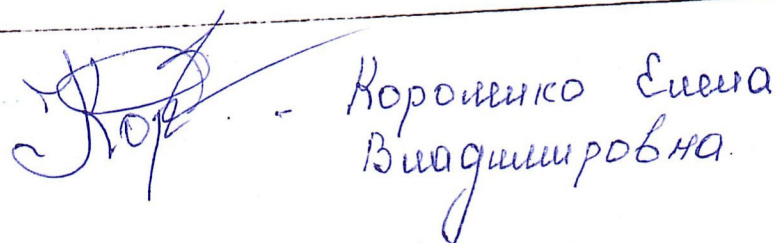 Кор - Короленко Елена
Владимировна.